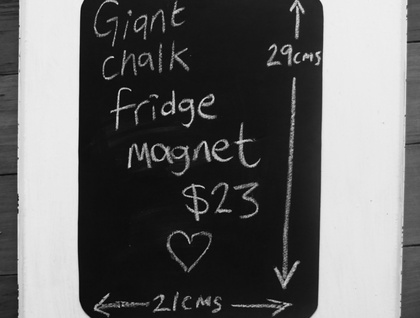 Giant
chalk
29cms
fridge
magnet
$23
21cms